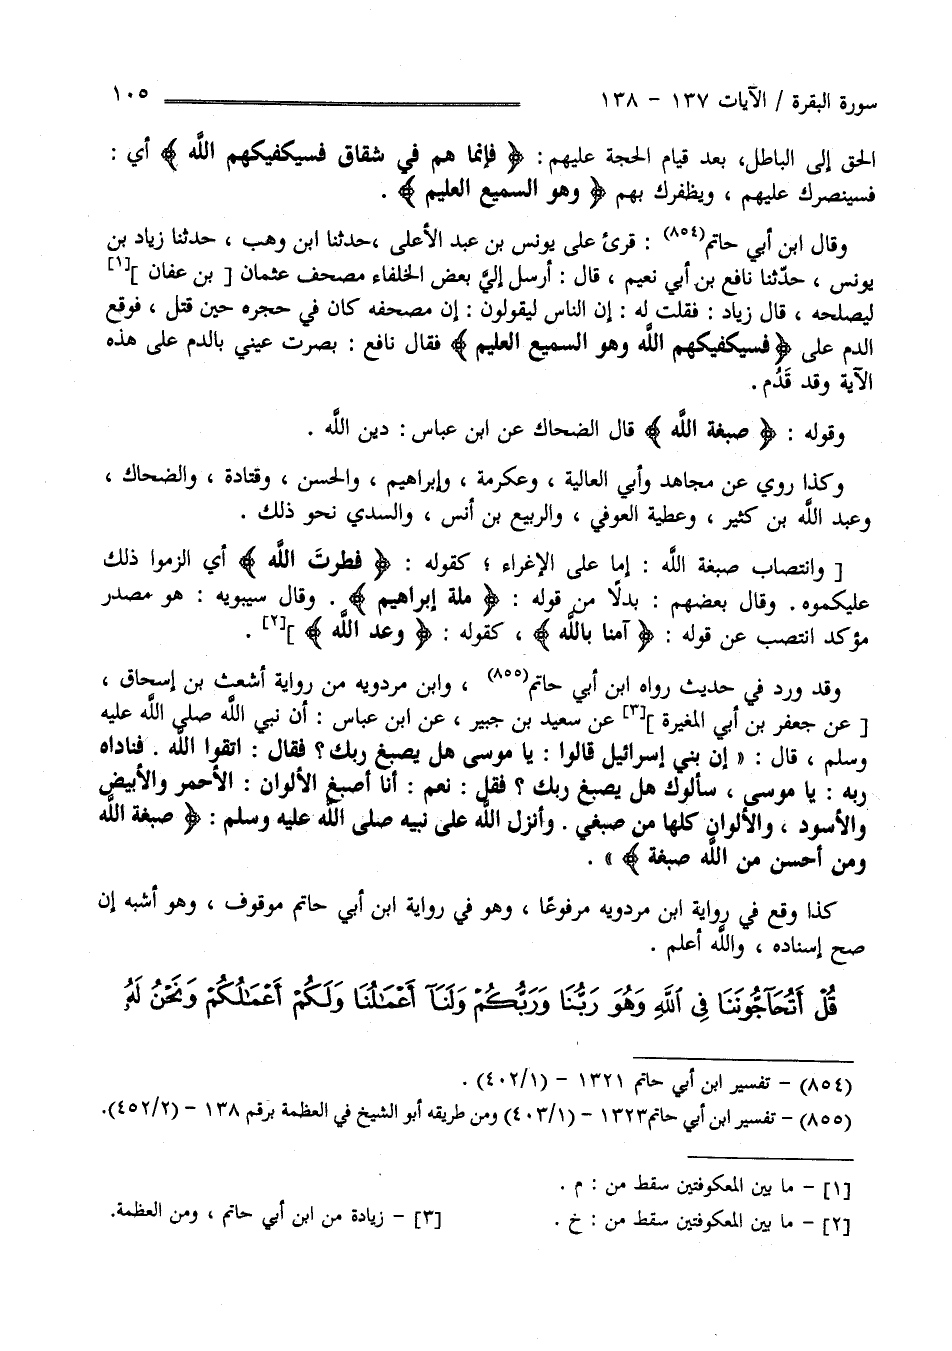 سورة البقرة / الآيات ١٣٧ - ١٣٨ ١٠٥
الحق إلى الباطل، بعد قيام الحجة عليهم : ﴿ فإنما هم في شقاق فسيكفيكهم اللَّه ﴾ أي :
فسينصرك عليهم ، ويظفرك بهم ﴿ وهو السميع العليم ﴾ .
وقال ابن أبي حاتم(٨٥٤) : قرئ على يونس بن عبد الأعلى ،حدثنا ابن وهب ، حدثنا زياد بن
يونس ، حدّثنا نافع بن أبي نعيم ، قال : أرسل إليَّ بعض الخلفاء مصحف عثمان [ بن عفان ][١]
ليصلحه ، قال زياد : فقلت له : إن الناس ليقولون : إن مصحفه كان في حجره حين قتل ، فوقع
الدم على ﴿ فسيكفيكهم اللَّه وهو السميع العليم ﴾ فقال نافع : بصرت عيني بالدم على هذه
الآية وقد قَدُم .
وقوله : ﴿ صبغة اللَّه ﴾ قال الضحاك عن ابن عباس : دين اللَّه .
وكذا روي عن مجاهد وأبي العالية ، وعكرمة ، وإبراهيم ، والحسن ، وقتادة ، والضحاك ،
وعبد اللَّه بن كثير ، وعطية العوفي ، والربيع بن أنس ، والسدي نحو ذلك .
[ وانتصاب صبغة اللَّه : إما على الإغراء ؛ كقوله : ﴿ فطرتَ اللَّه ﴾ أي الزموا ذلك
عليكموه . وقال بعضهم : بدلًا من قوله : ﴿ ملة إبراهيم ﴾ . وقال سيبويه : هو مصدر
مؤكد انتصب عن قوله : ﴿ آمنا باللَّه ﴾ ، كقوله : ﴿ وعد اللَّه ﴾ ][٢] .
وقد ورد في حديث رواه ابن أبي حاتم(٨٥٥) ، وابن مردويه من رواية أشعث بن إسحاق ،
[ عن جعفر بن أبي المغيرة ][٣] عن سعيد بن جبير ، عن ابن عباس : أن نبي اللَّه صلى اللَّه عليه
وسلم ، قال : « إن بني إسرائيل قالوا : يا موسى هل يصبغ ربك ؟ فقال : اتقوا اللَّه . فناداه
ربه : يا موسى ، سألوك هل يصبغ ربك ؟ فقل : نعم : أنا أصبغ الألوان : الأحمر والأبيض
والأسود ، والألوان كلها من صبغي . وأنزل اللَّه على نبيه صلى اللَّه عليه وسلم : ﴿ صبغة اللَّه
ومن أحسن من اللَّه صبغة ﴾ » .
كذا وقع في رواية ابن مردويه مرفوعًا ، وهو في رواية ابن أبي حاتم موقوف ، وهو أشبه إن
صح إسناده ، واللَّه أعلم .
قُلْ أَتُحَآجُّونَنَا فِى ٱللَّهِ وَهُوَ رَبُّنَا وَرَبُّكُمْ وَلَنَآ أَعْمَٰلُنَا وَلَكُمْ أَعْمَٰلُكُمْ وَنَحْنُ لَهُۥ
(٨٥٤) - تفسير ابن أبي حاتم ١٣٢١ - (٤٠٢/١) .
(٨٥٥) - تفسير ابن أبي حاتم١٣٢٣ - (٤٠٣/١) ومن طريقه أبو الشيخ في العظمة برقم ١٣٨ - (٤٥٢/٢).
[١] - ما بين المعكوفتين سقط من : م .
[٢] - ما بين المعكوفتين سقط من : خ . [٣] - زيادة من ابن أبي حاتم ، ومن العظمة.